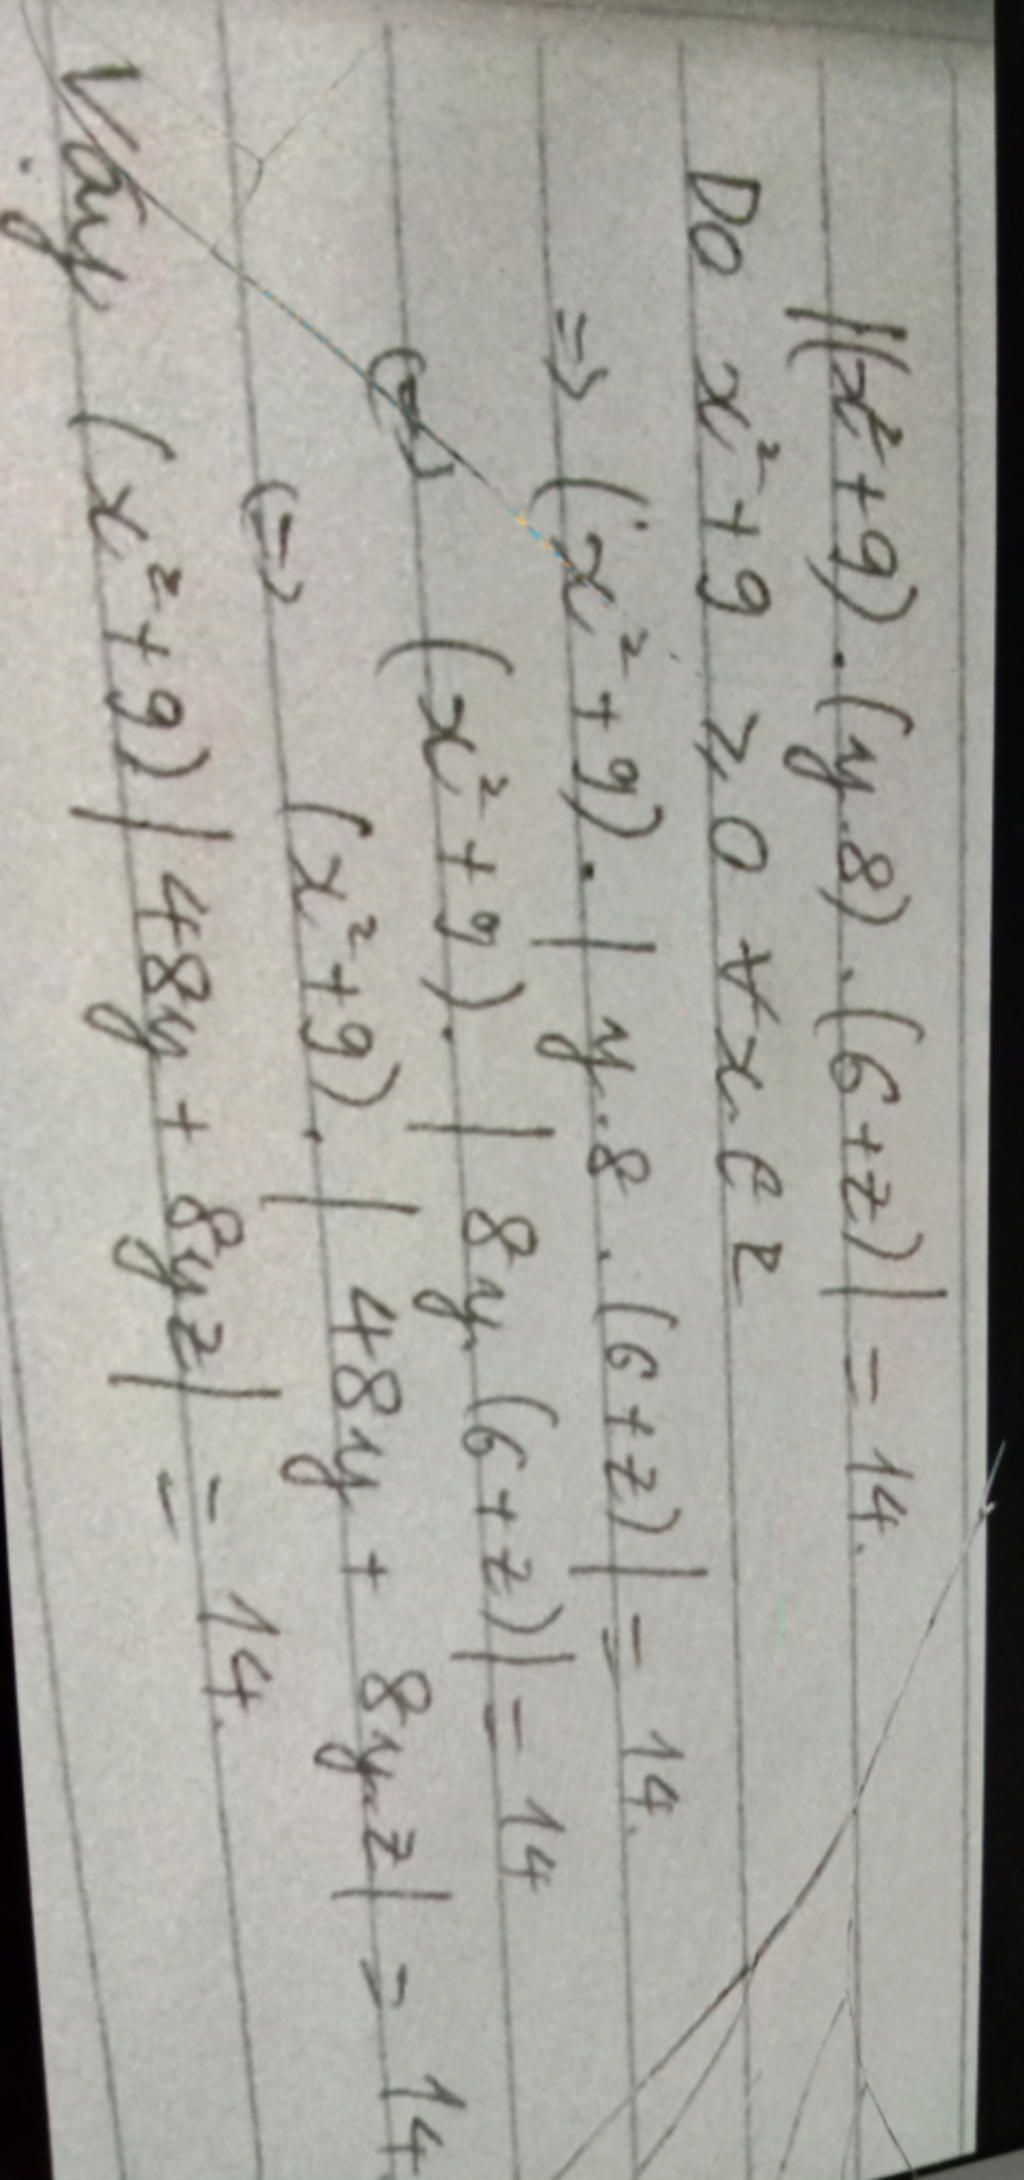 |(x²+9).(y.8).(6+z)| = 14.
Do x²+9 ≥ 0 ∀x ∈ R
=> (x²+9).|y.8.(6+z)| = 14.
(=) (x²+9).|8y(6+z)| = 14
(=) (x²+9).|48y + 8yz| = 14
Vậy (x²+9)|48y + 8yz| = 14.